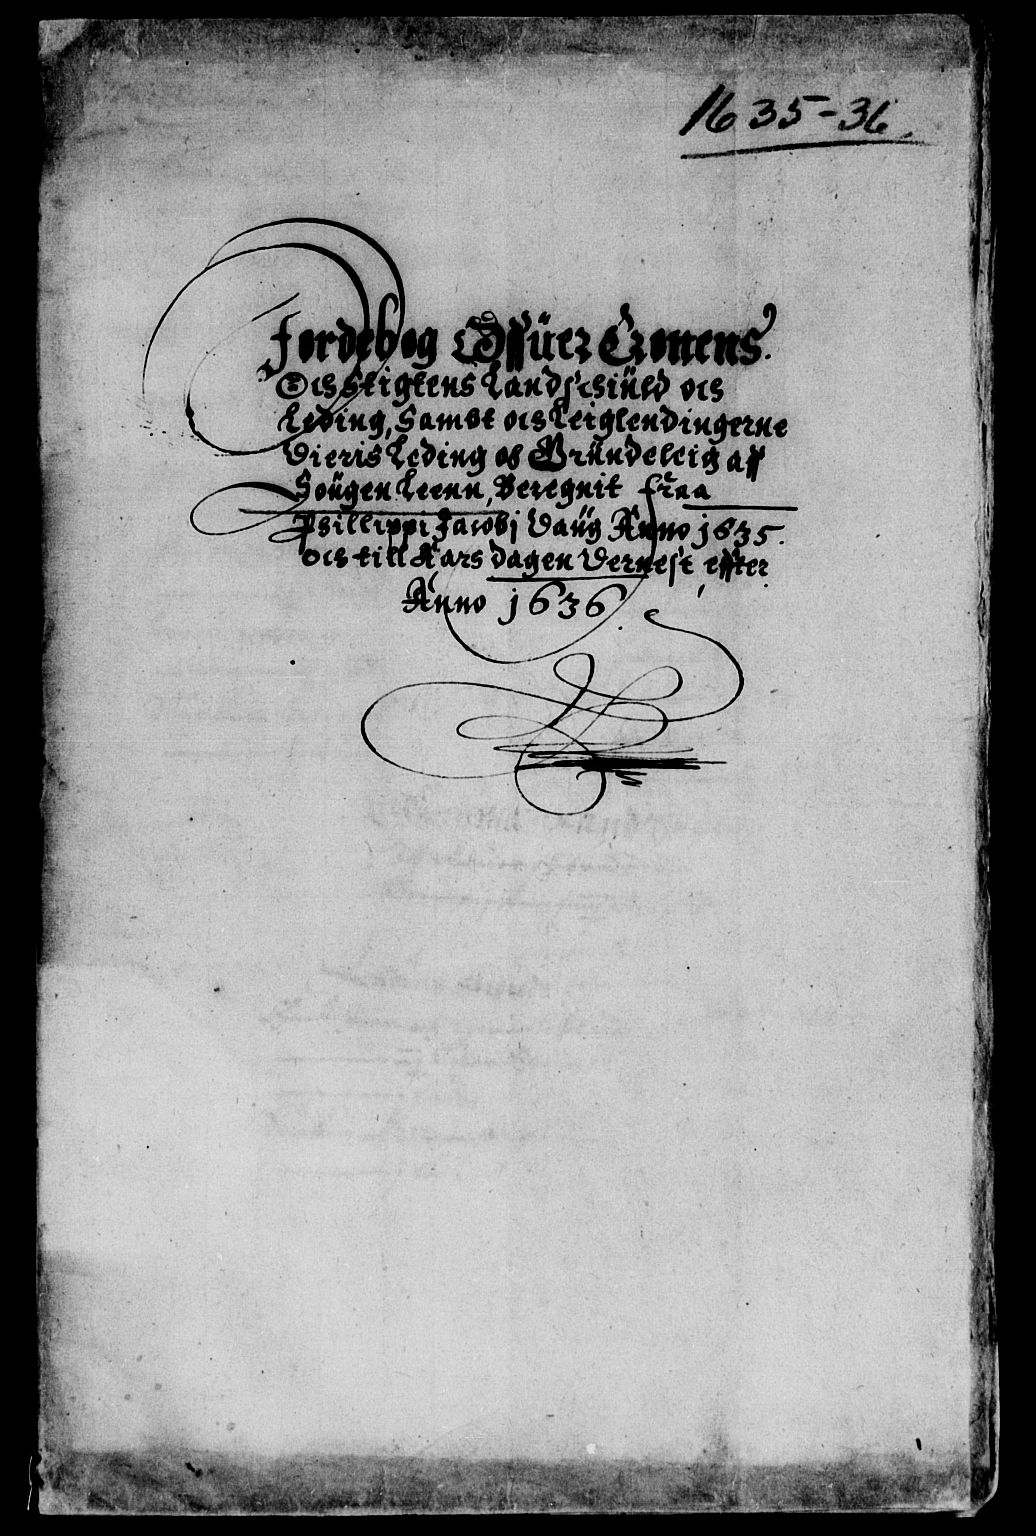 1635-36.
Jordebog Offüer Cronens
Och Stigtens Landschiüld och
Leding, Sambt och Leiglendingerne
Dieris Leding og Gründeleig aff
Sougen Leenn, Beregnit fraa
Phillippi Jacobj Daüg Anno 1635.
Och till Kaarsdagen Dernest effter
Anno 1636.